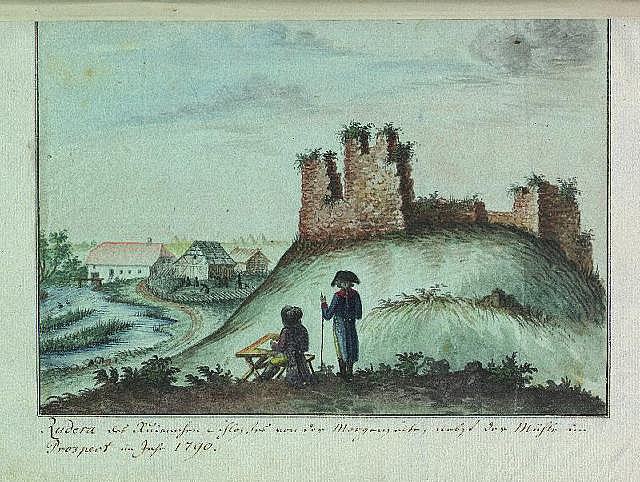 Rudera des Ruienschen Schlosses von der Morgenseite, nebst der Mühle im
Prospect im Jahr 1790.